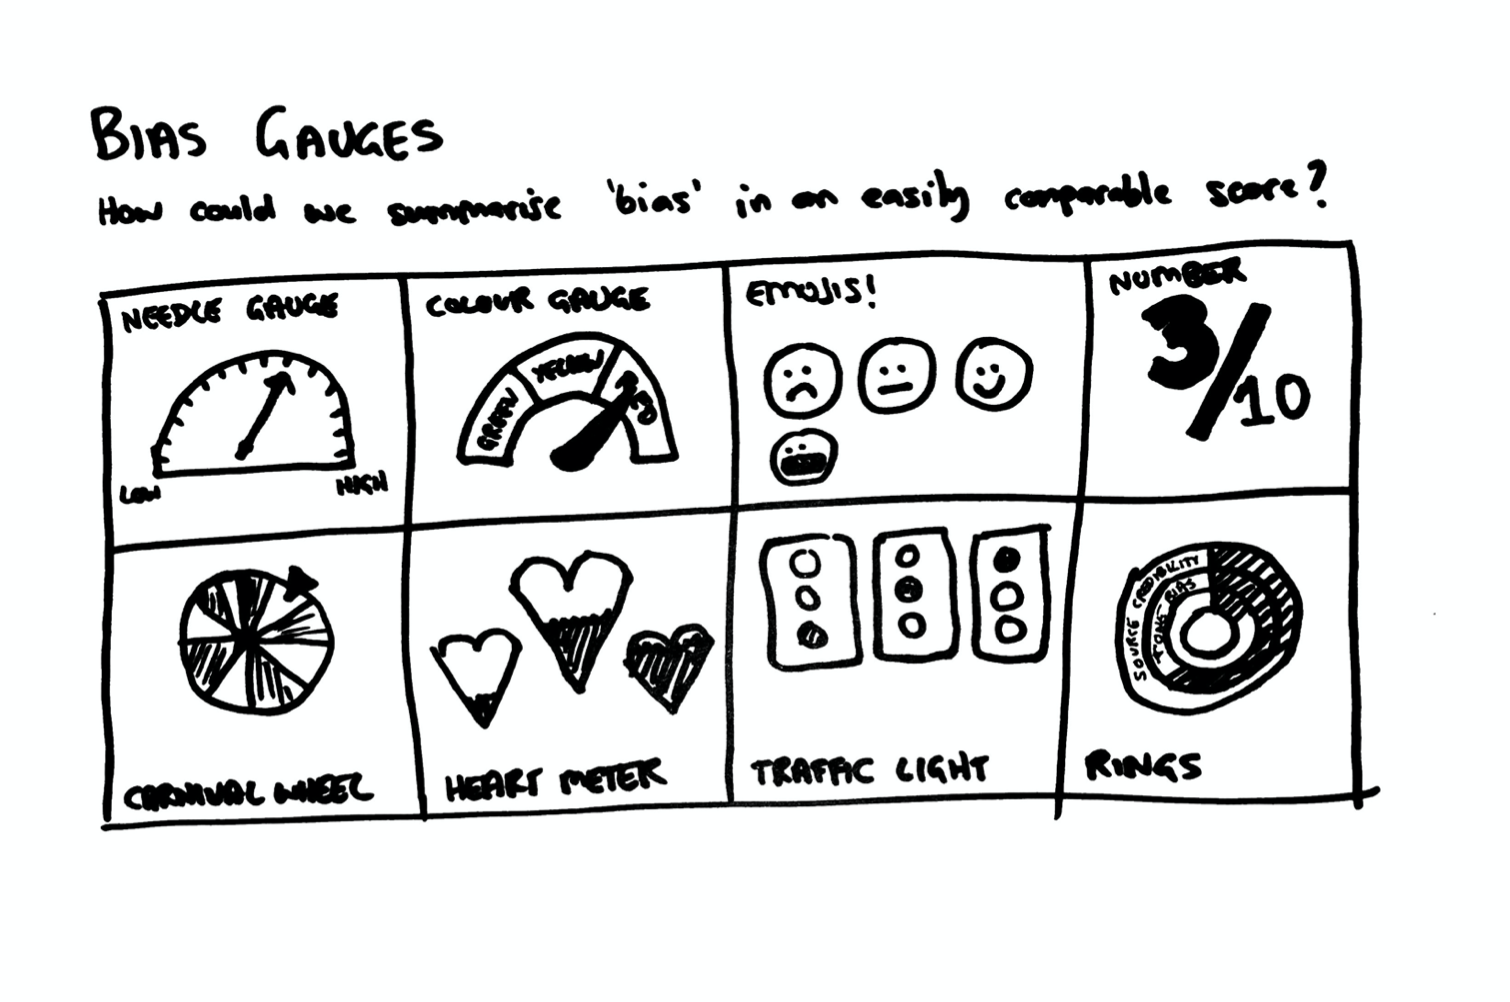 BIAS GAUGES
How could we summarise 'bias' in an easily comparable score?
NEEDLE GAUGE
LOW
HIGH
COLOUR GAUGE
GREEN
YELLOW
RED
EMOJIS!
NUMBER
3/10
CARNIVAL WHEEL
HEART METER
TRAFFIC LIGHT
SOURCE CREDIBILITY
TONE BIAS
RINGS